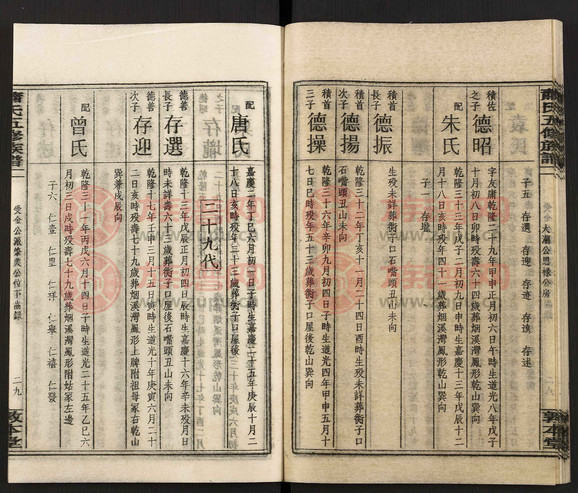 蕭氏五修族譜
大瀾公思祿公房
敦本堂
子五 存選 存迎 存遠
積佐
之子
德昭
字友庸乾隆二十九年甲申正月初六日午時生道光八年戊子
十月初八日卯時歿壽六十四歲葬烟溪灣鳳形乾山巽向
配
朱氏
乾隆三十三年戊子二月初九日申時生嘉慶十三年戊辰十二
月初四日亥時歿壽四十一歲葬烟溪灣鳳形乾山巽向
子一 存壠
積首
長子
德振
生歿未詳葬衖子口石嘴頭丑山未向
積首
次子
德揚
乾隆二十二年丁亥十一月二十四日酉時生歿未詳葬衖子口
石嘴頭丑山未向
積首
三子
德操
乾隆三十六年辛卯九月初四日亥時生道光四年甲申五月十
七日巳時歿壽五十三歲葬衖子口屋後乾山巽向
配
唐氏
嘉慶二年丁巳六月初一日子時生嘉慶二十五年庚辰十月二
十八日亥時歿年二十三歲葬衖子口屋後
二十九代
德善
長子
存選
乾隆三十三年戊辰正月初四日辰時生嘉慶十六年辛未歿月日
時未詳壽六十三歲葬衖子口屋後石嘴頭丑山未向
德善
次子
存迎
乾隆十七年壬申三月十五日寅時生道光十年庚寅六月二十
二日亥時歿壽七十九歲葬烟溪灣鳳形上牌附祖母冢右乾山
巽兼戌辰向
配
曾氏
乾隆三十一年丙戌六月十四日子時生道光二十五年乙巳六
月初三日戌時歿壽七十九歲葬烟溪灣鳳形附姑冢左邊
子六 仁壹 仁里 仁祥 仁寧 仁禧 仁發
蕭氏五修族譜
受全公派榮美公位下齒錄
二九
敦本堂